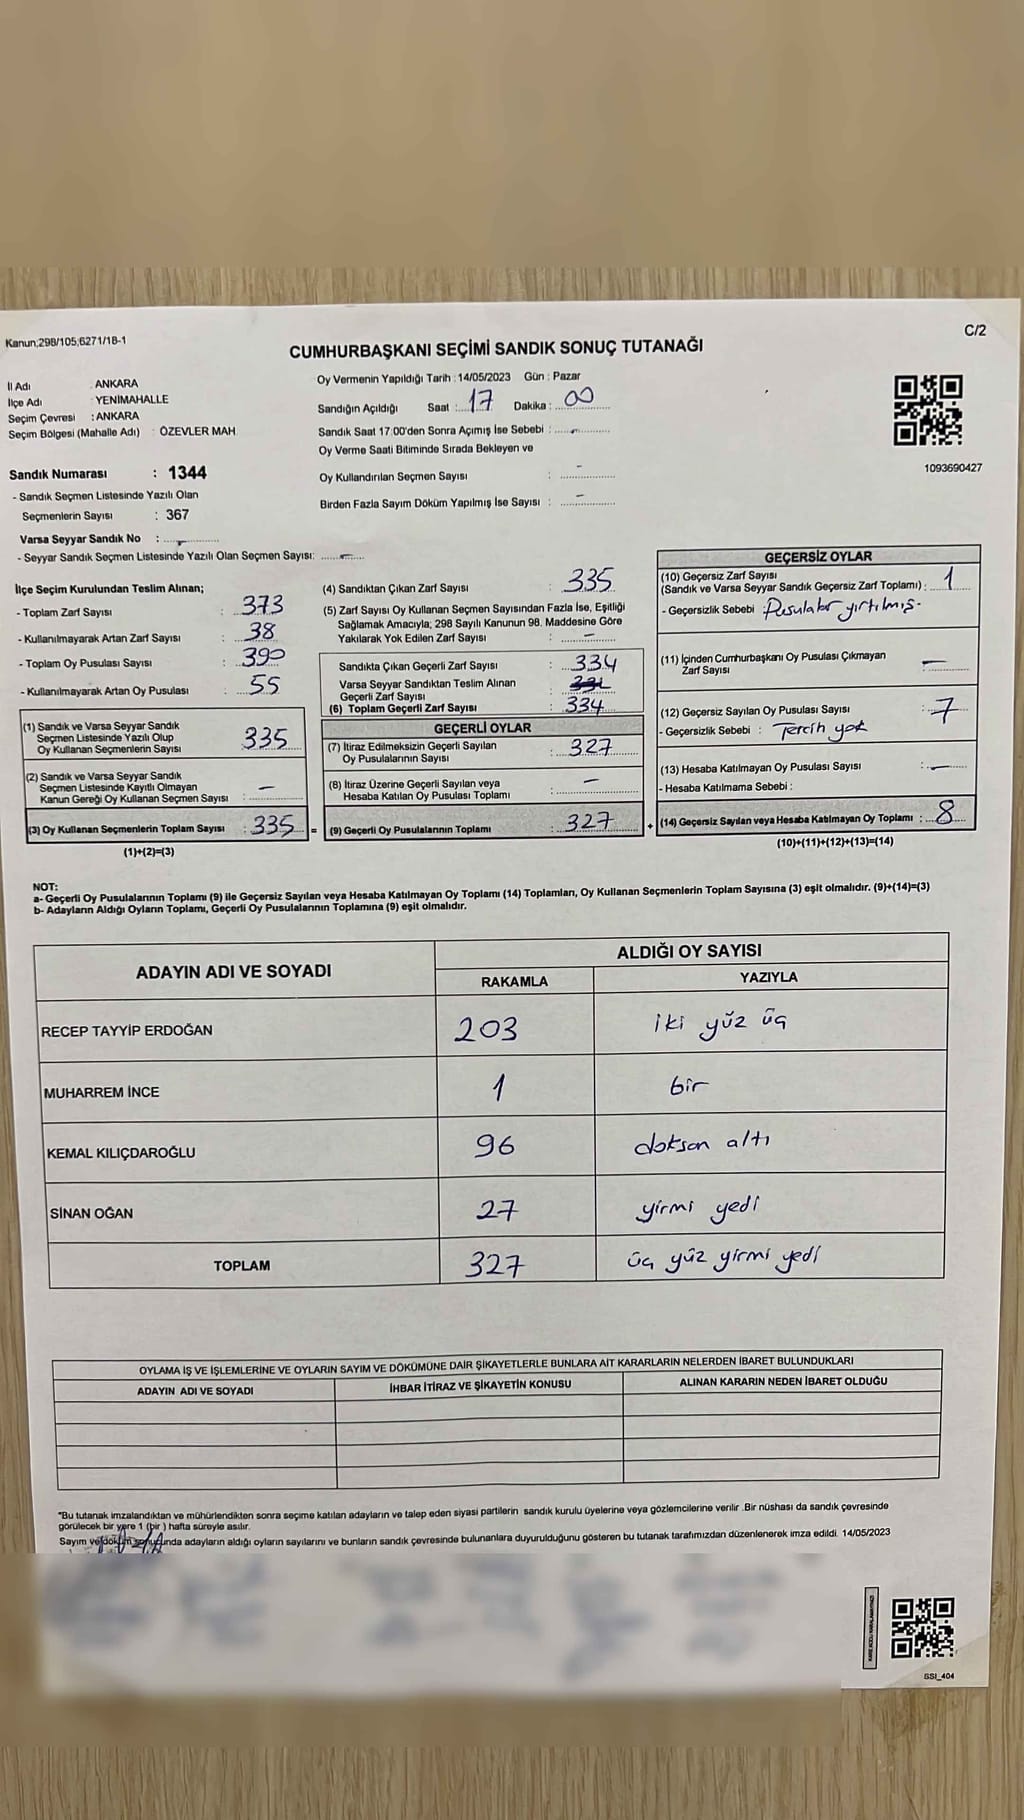 Kanun;298/105;6271/18-1
C/2
CUMHURBAŞKANI SEÇİMİ SANDIK SONUÇ TUTANAĞI
İl Adı : ANKARA
İlçe Adı : YENİMAHALLE
Seçim Çevresi : ANKARA
Seçim Bölgesi (Mahalle Adı) : ÖZEVLER MAH
Sandık Numarası : 1344
- Sandık Seçmen Listesinde Yazılı Olan
Seçmenlerin Sayısı : 367
Varsa Seyyar Sandık No : -
- Seyyar Sandık Seçmen Listesinde Yazılı Olan Seçmen Sayısı: -
Oy Vermenin Yapıldığı Tarih : 14/05/2023 Gün : Pazar
Sandığın Açıldığı Saat : 17 Dakika : 00
Sandık Saat 17:00'den Sonra Açımış İse Sebebi : -
Oy Verme Saati Bitiminde Sırada Bekleyen ve
Oy Kullandırılan Seçmen Sayısı : -
Birden Fazla Sayım Döküm Yapılmış İse Sayısı : -
1093690427
İlçe Seçim Kurulundan Teslim Alınan;
- Toplam Zarf Sayısı : 373
- Kullanılmayarak Artan Zarf Sayısı : 38
- Toplam Oy Pusulası Sayısı : 390
- Kullanılmayarak Artan Oy Pusulası : 55
(1) Sandık ve Varsa Seyyar Sandık
Seçmen Listesinde Yazılı Olup
Oy Kullanan Seçmenlerin Sayısı : 335
(2) Sandık ve Varsa Seyyar Sandık
Seçmen Listesinde Kayıtlı Olmayan
Kanun Gereği Oy Kullanan Seçmen Sayısı : -
(3) Oy Kullanan Seçmenlerin Toplam Sayısı : 335
(1)+(2)=(3)
(4) Sandıktan Çıkan Zarf Sayısı : 335
(5) Zarf Sayısı Oy Kullanan Seçmen Sayısından Fazla İse, Eşitliği
Sağlamak Amacıyla; 298 Sayılı Kanunun 98. Maddesine Göre
Yakılarak Yok Edilen Zarf Sayısı : -
Sandıkta Çıkan Geçerli Zarf Sayısı : 334
Varsa Seyyar Sandıktan Teslim Alınan
Geçerli Zarf Sayısı :
(6) Toplam Geçerli Zarf Sayısı : 334
GEÇERLİ OYLAR
(7) İtiraz Edilmeksizin Geçerli Sayılan
Oy Pusulalarının Sayısı : 327
(8) İtiraz Üzerine Geçerli Sayılan veya
Hesaba Katılan Oy Pusulası Toplamı : -
= (9) Geçerli Oy Pusulalarının Toplamı : 327
GEÇERSİZ OYLAR
(10) Geçersiz Zarf Sayısı
(Sandık ve Varsa Seyyar Sandık Geçersiz Zarf Toplamı) : 1
- Geçersizlik Sebebi : Pusulalar yırtılmış.
(11) İçinden Cumhurbaşkanı Oy Pusulası Çıkmayan
Zarf Sayısı : -
(12) Geçersiz Sayılan Oy Pusulası Sayısı : 7
- Geçersizlik Sebebi : Tercih yok
(13) Hesaba Katılmayan Oy Pusulası Sayısı : -
- Hesaba Katılmama Sebebi :
+ (14) Geçersiz Sayılan veya Hesaba Katılmayan Oy Toplamı : 8
(10)+(11)+(12)+(13)=(14)
NOT:
a- Geçerli Oy Pusulalarının Toplamı (9) ile Geçersiz Sayılan veya Hesaba Katılmayan Oy Toplamı (14) Toplamları, Oy Kullanan Seçmenlerin Toplam Sayısına (3) eşit olmalıdır. (9)+(14)=(3)
b- Adayların Aldığı Oyların Toplamı, Geçerli Oy Pusulalarının Toplamına (9) eşit olmalıdır.
ADAYIN ADI VE SOYADI ALDIĞI OY SAYISI
RAKAMLA YAZIYLA
RECEP TAYYİP ERDOĞAN 203 iki yüz üç
MUHARREM İNCE 1 bir
KEMAL KILIÇDAROĞLU 96 doksan altı
SİNAN OĞAN 27 yirmi yedi
TOPLAM 327 üç yüz yirmi yedi
OYLAMA İŞ VE İŞLEMLERİNE VE OYLARIN SAYIM VE DÖKÜMÜNE DAİR ŞİKAYETLERLE BUNLARA AİT KARARLARIN NELERDEN İBARET BULUNDUKLARI
ADAYIN ADI VE SOYADI İHBAR İTİRAZ VE ŞİKAYETİN KONUSU ALINAN KARARIN NEDEN İBARET OLDUĞU
*Bu tutanak imzalandıktan ve mühürlendikten sonra seçime katılan adayların ve talep eden siyasi partilerin sandık kurulu üyelerine veya gözlemcilerine verilir .Bir nüshası da sandık çevresinde
görülecek bir yere 1 (bir ) hafta süreyle asılır.
Sayım ve döküm sonucunda adayların aldığı oyların sayılarını ve bunların sandık çevresinde bulunanlara duyurulduğunu gösteren bu tutanak tarafımızdan düzenlenerek imza edildi. 14/05/2023
SSI_404